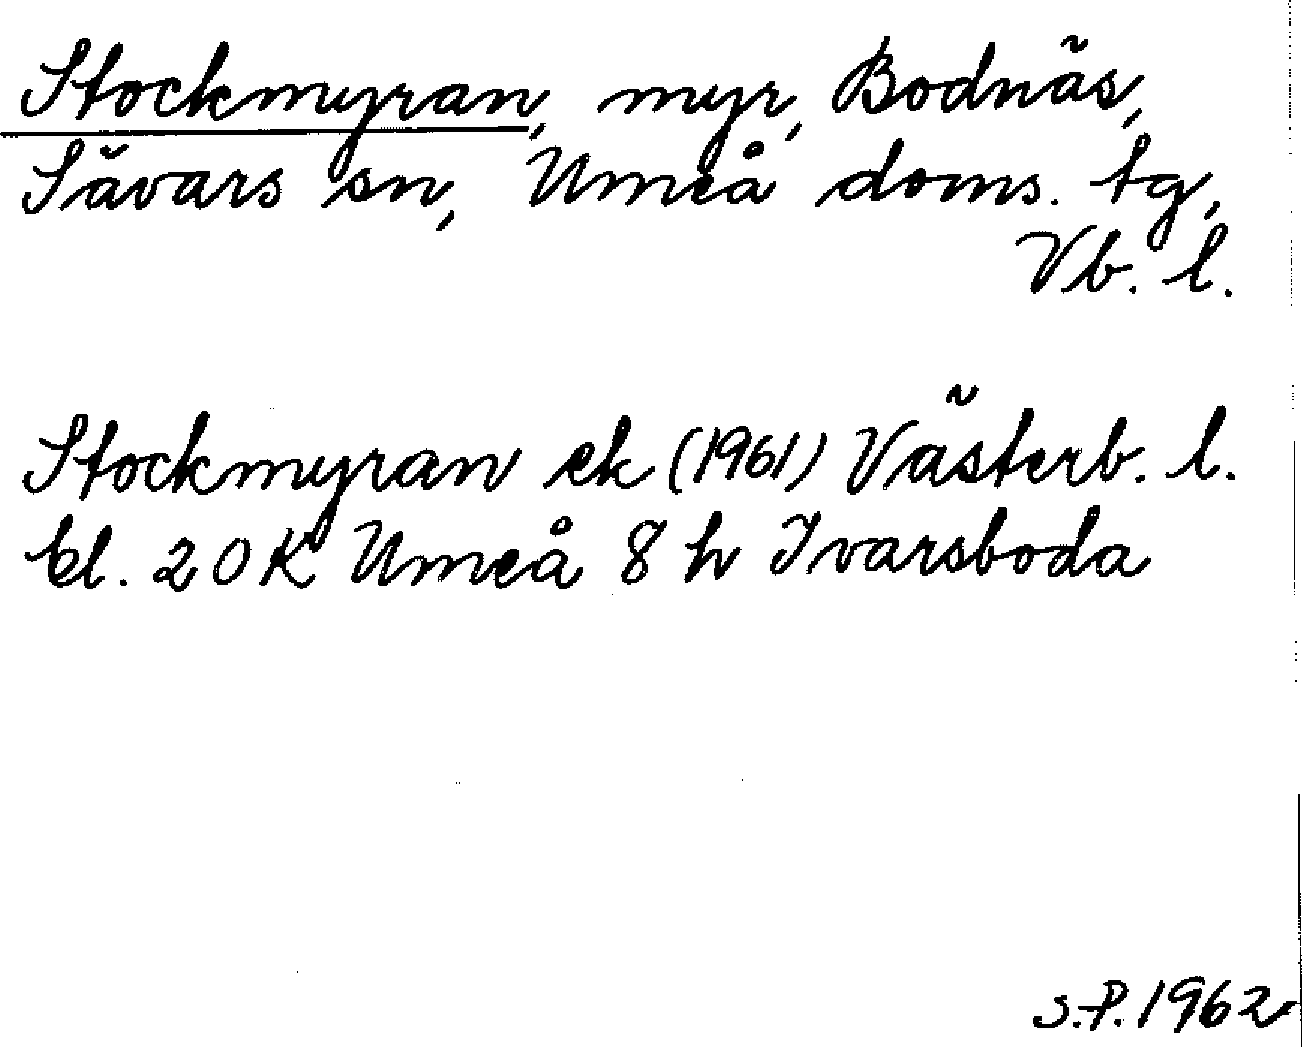 Stockmyran, myr, Bodnäs,
Sävars sn, Umeå doms. tg,
Vb. l.
Stockmyran ek (1961) Västerb. l.
bl. 20 K Umeå 8 h Ivarsboda
S.P. 1962